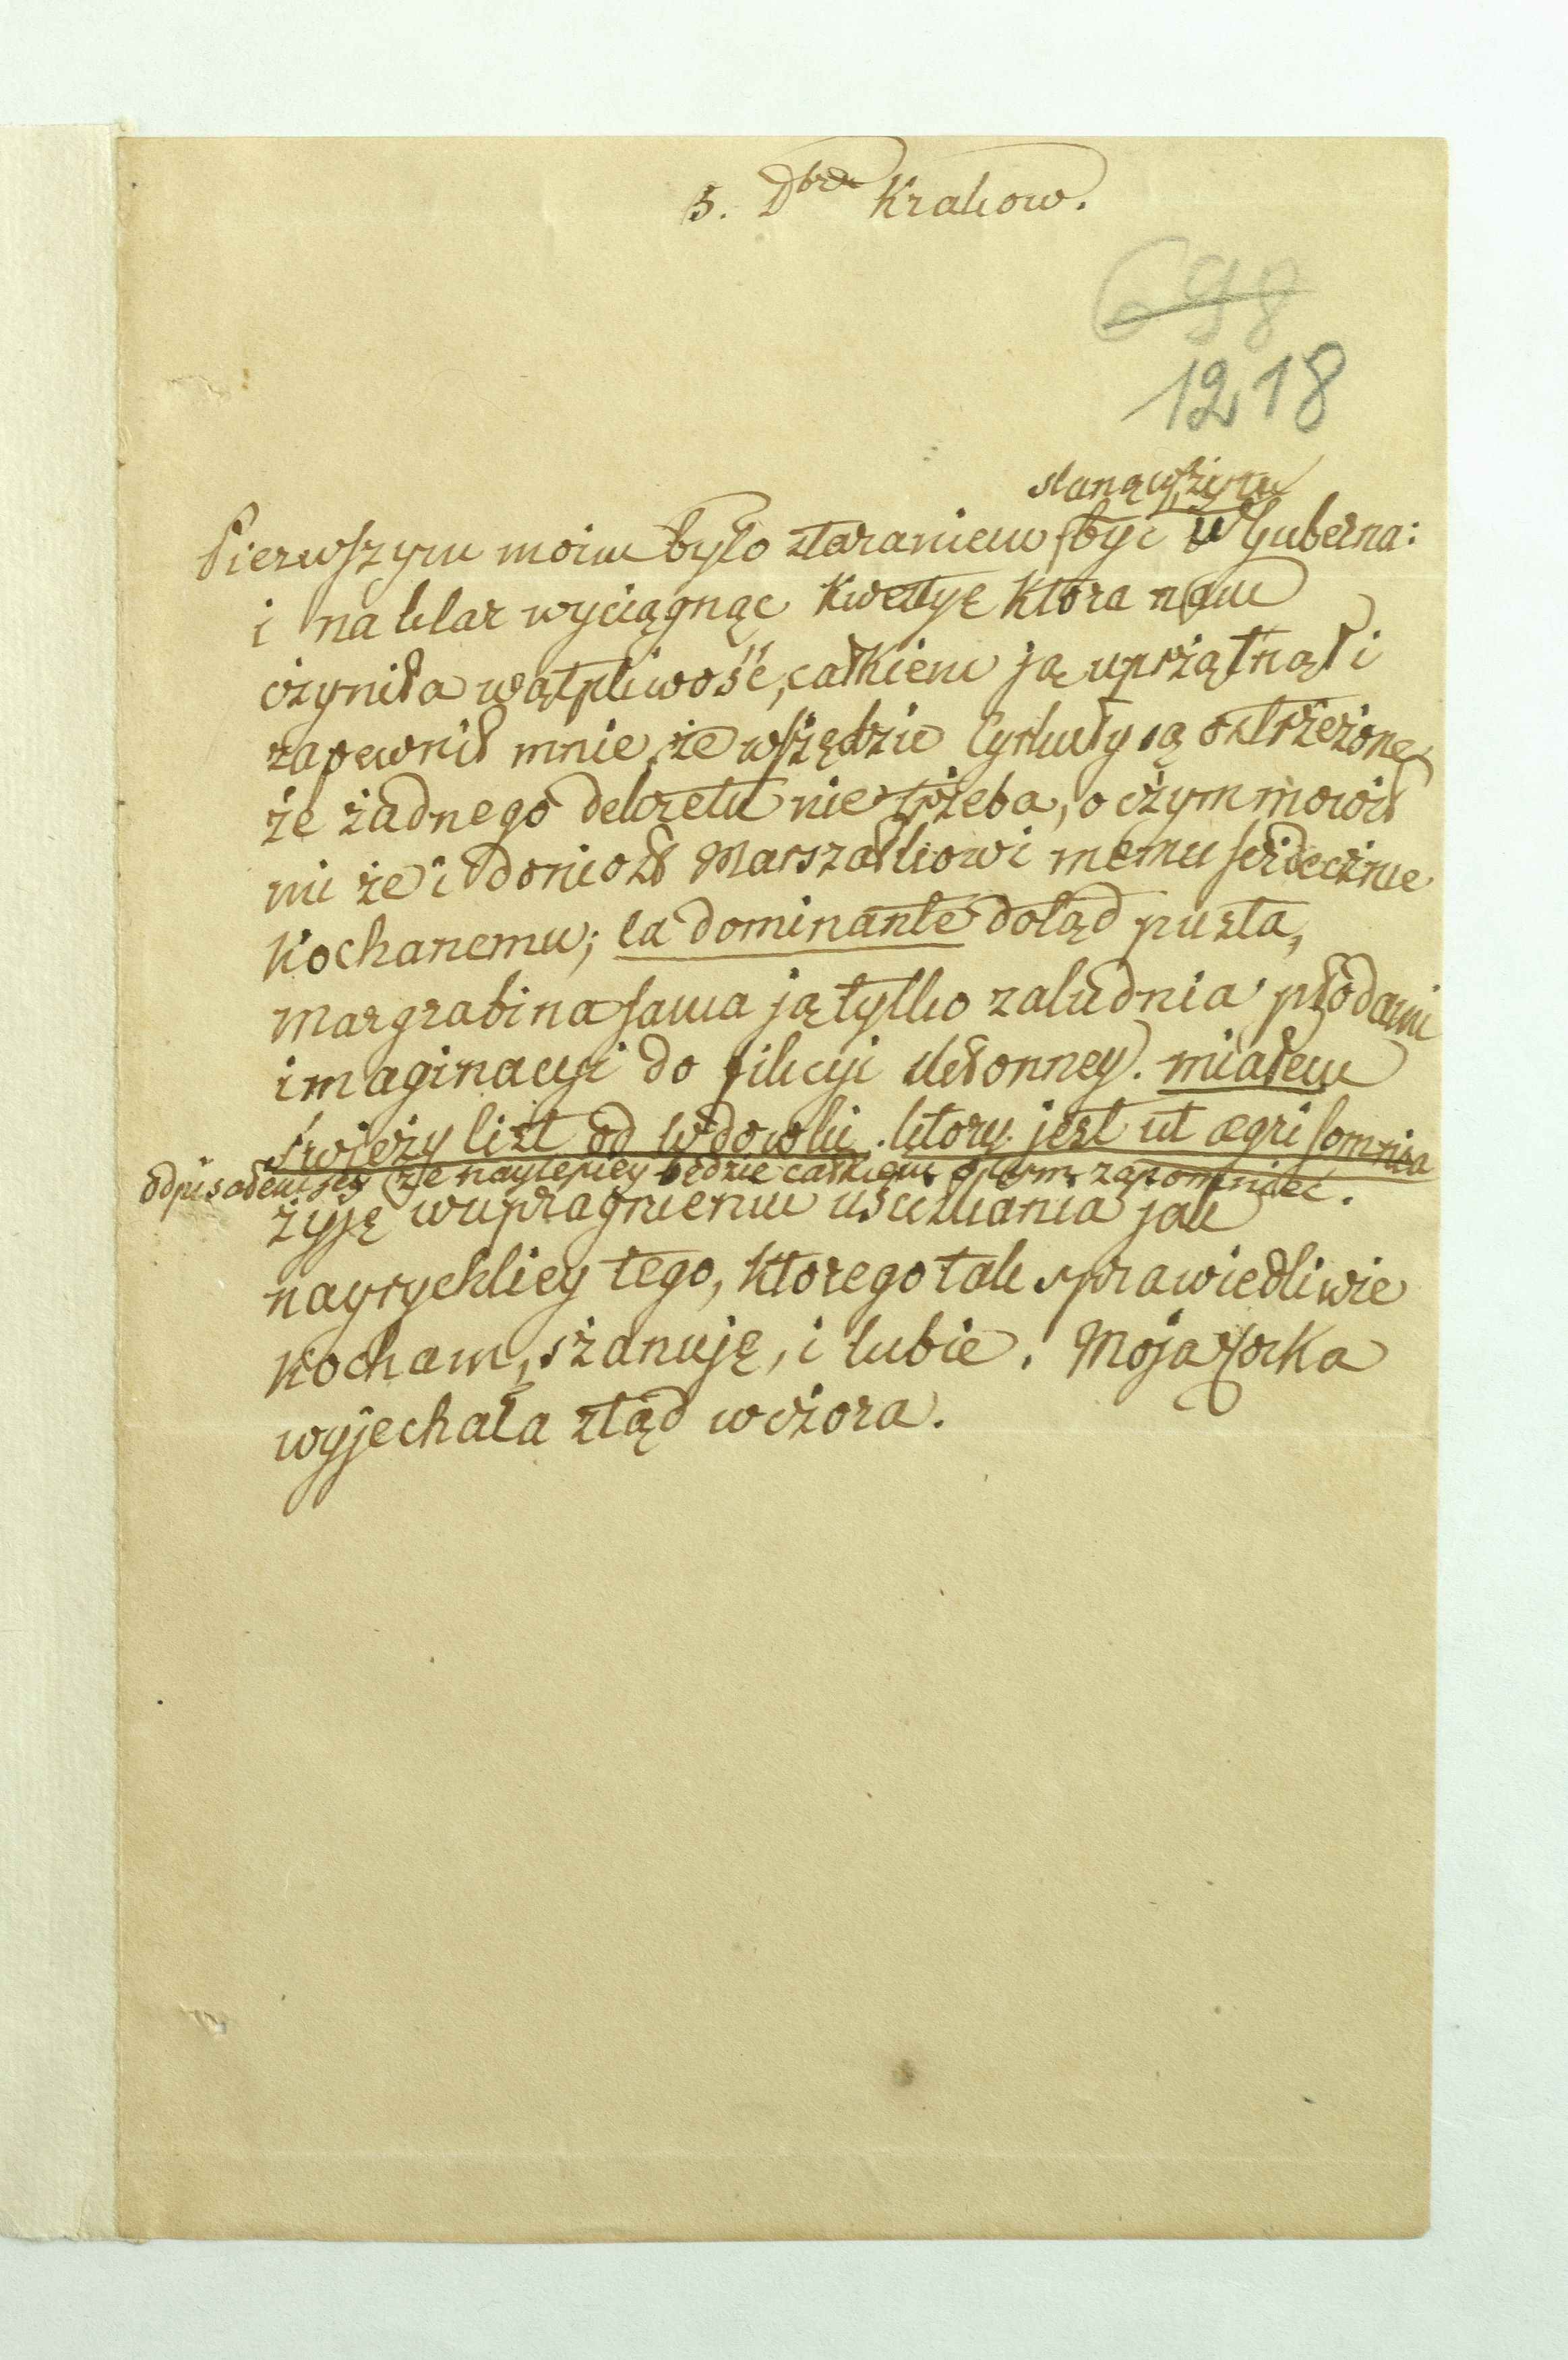 5. Dbra Krakow.
698
1218
stanąwszy tu
Pierwszym moim było staraniem być u Guberna:
i na klar wyciągnąc kwestyę ktora nam
czyniła wątpliwość, całkiem ją uprzątnął i
zapewnił mnie, że wszędzie Cyrkuły są ostrzeżone,
że żadnego dekretu nie trzeba, o czym mowił
mi że i doniosł Marszałkowi memu serdecznie
kochanemu; la dominante dotąd pusta,
Margrabina sama ją tylko zaludnia płodami
imaginacyi do fikcyi skłonney. miałem
świeży list od wdowki. ktory jest ut ægri somnia
odpisałem jey że naylepiey będzie całkiem o tym zapomnieć.
żyję w upragnieniu uściskania jak
nayrychley tego, ktorego tak sprawiedliwie
kocham, szanuję, i lubie. Moja Corka
wyjechała ztąd wczora.